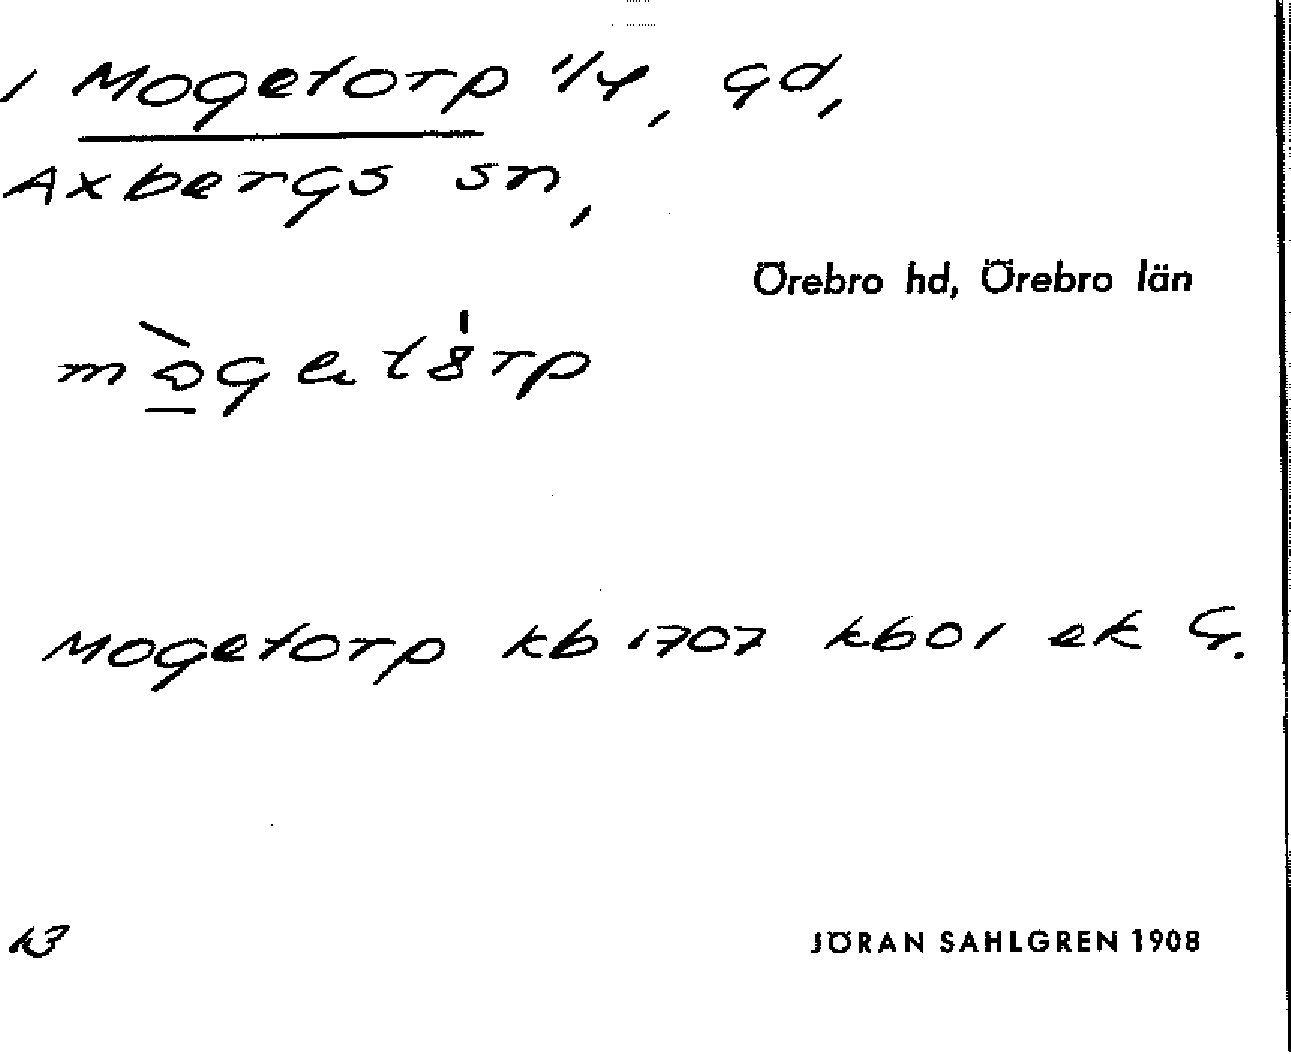 1 Mogetorp 1/4, gd,
Axbergs sn,
Örebro hd, Örebro län
Mogetorp kb 1707 kb 01 ek G.
JÖRAN SAHLGREN 1908